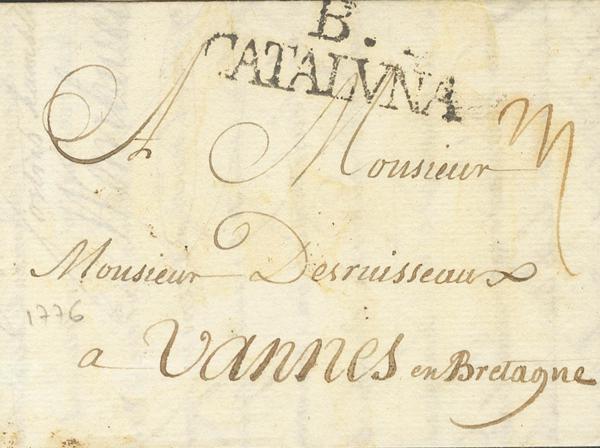 B.
CATALVNA
A Monsieur
Monsieur Desruisseaux
1776
a Vannes en Bretagne